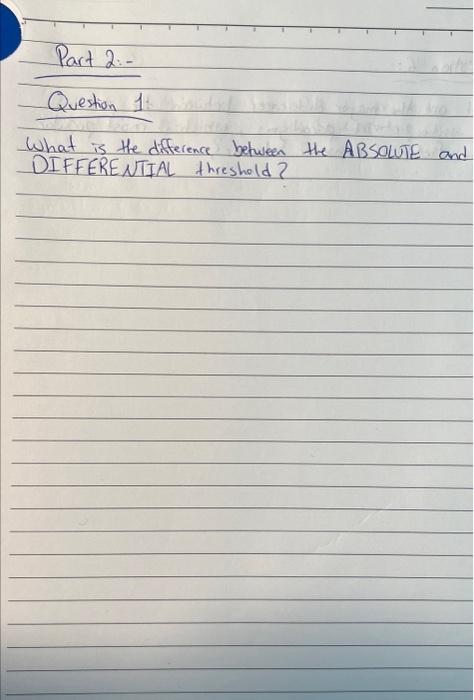 Part 2:-
Question 1:
What is the difference between the ABSOLUTE and
DIFFERENTIAL threshold?